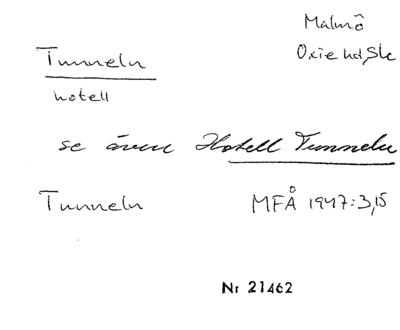 Malmö
Tunneln Oxie hd, Sk
hotell
se även Hotell Tunneln
Tunneln MFÅ 1947:3,15
Nr 21462